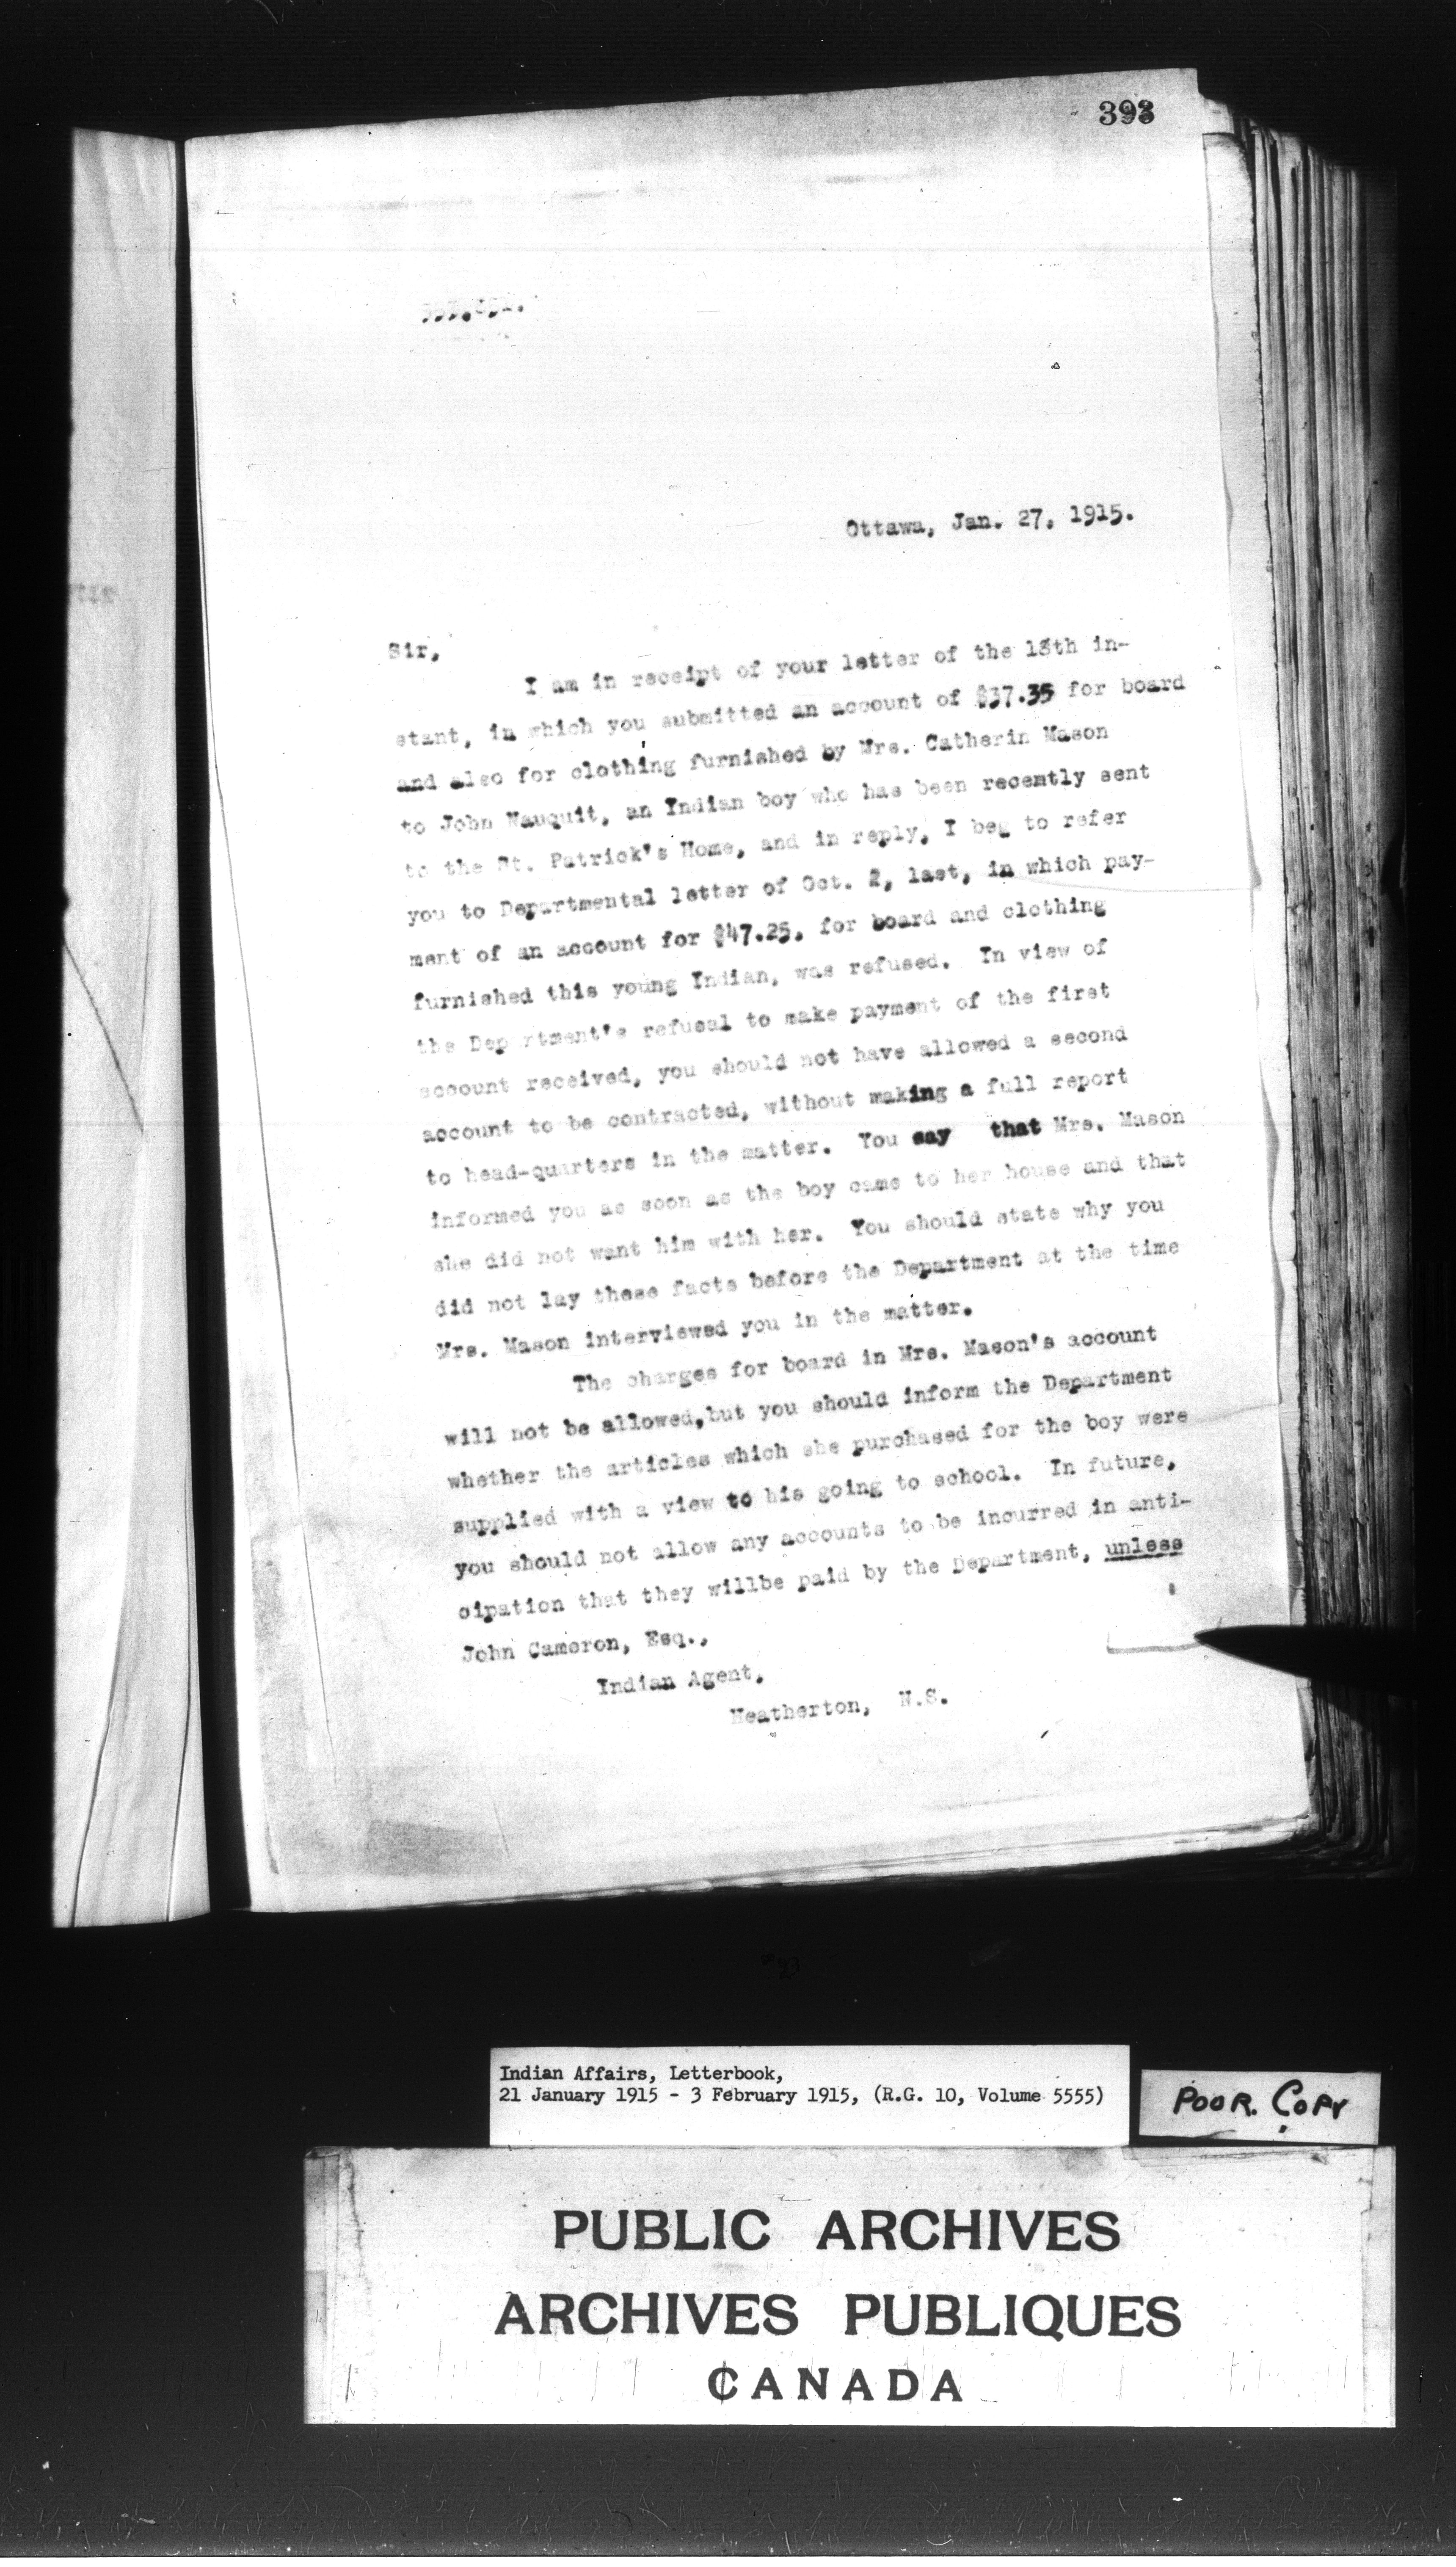 393
Ottawa, Jan. 27, 1915.
Sir,
I am in receipt of your letter of the 13th in-
stant, in which you submitted an account of $37.35 for board
and also for clothing furnished by Mrs. Catherin Mason
to John Nauquit, an Indian boy who has been recently sent
to the St. Patrick's Home, and in reply, I beg to refer
you to Departmental letter of Oct. 2, last, in which pay-
ment of an account for $47.25, for board and clothing
furnished this young Indian, was refused. In view of
the Department's refusal to make payment of the first
account received, you should not have allowed a second
account to be contracted, without making a full report
to head-quarters in the matter. You say that Mrs. Mason
informed you as soon as the boy came to her house and that
she did not want him with her. You should state why you
did not lay these facts before the Department at the time
Mrs. Mason interviewed you in the matter.
The charges for board in Mrs. Mason's account
will not be allowed, but you should inform the Department
whether the articles which she purchased for the boy were
supplied with a view to his going to school. In future,
you should not allow any accounts to be incurred in anti-
cipation that they willbe paid by the Department, unless
John Cameron, Esq.,
Indian Agent,
Heatherton, N.S.
Indian Affairs, Letterbook,
21 January 1915 - 3 February 1915, (R.G. 10, Volume 5555)
POOR. COPY
PUBLIC ARCHIVES
ARCHIVES PUBLIQUES
CANADA